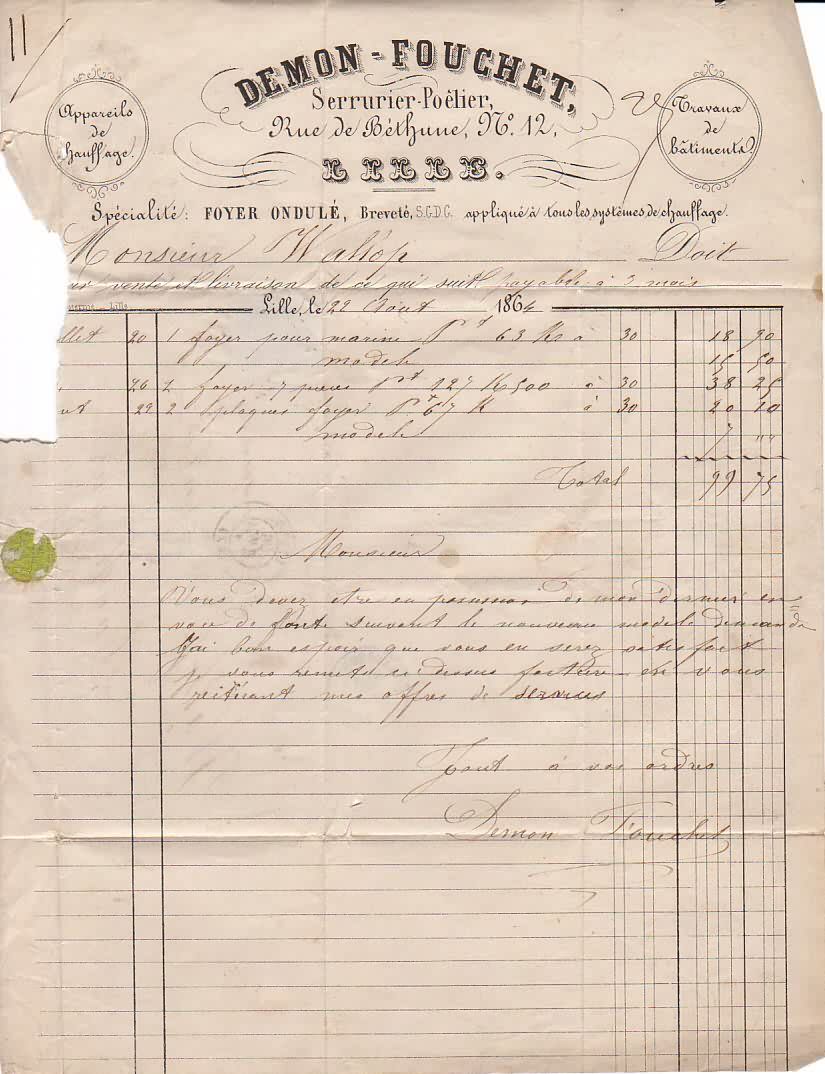 11
DEMON-FOUCHET,
Serrurier-Poêlier,
Rue de Béthune, N° 12,
LILLE.
Appareils
de
chauffage.
Travaux
de
bâtiments
Spécialité: FOYER ONDULÉ, Breveté, S.G.D.G. appliqué à tous les systèmes de chauffage.
Monsieur Doit
vente et livraison de ce qui suit payable à 3 mois
Lille
Lille, le 22 Aout 1864
llet 20 1 foyer pour marine 63 Ks à 30 18 90
modele 15 50
26 2 foyer 7 pieces 127 K 500 à 30 38 25
ut 22 2 plaques foyer 67 K à 30 20 10
modele 7 "
Total 99 75
Monsieur
Vous devez etre en possession de mon dernier en=
voie de fonte suivant le nouveau modele demandé
J'ai bon espoir que vous en serez satisfait
je vous remets ci dessus facture en vous
réitérant mes offres de services
Tout à vos ordres
Demon Fouchet